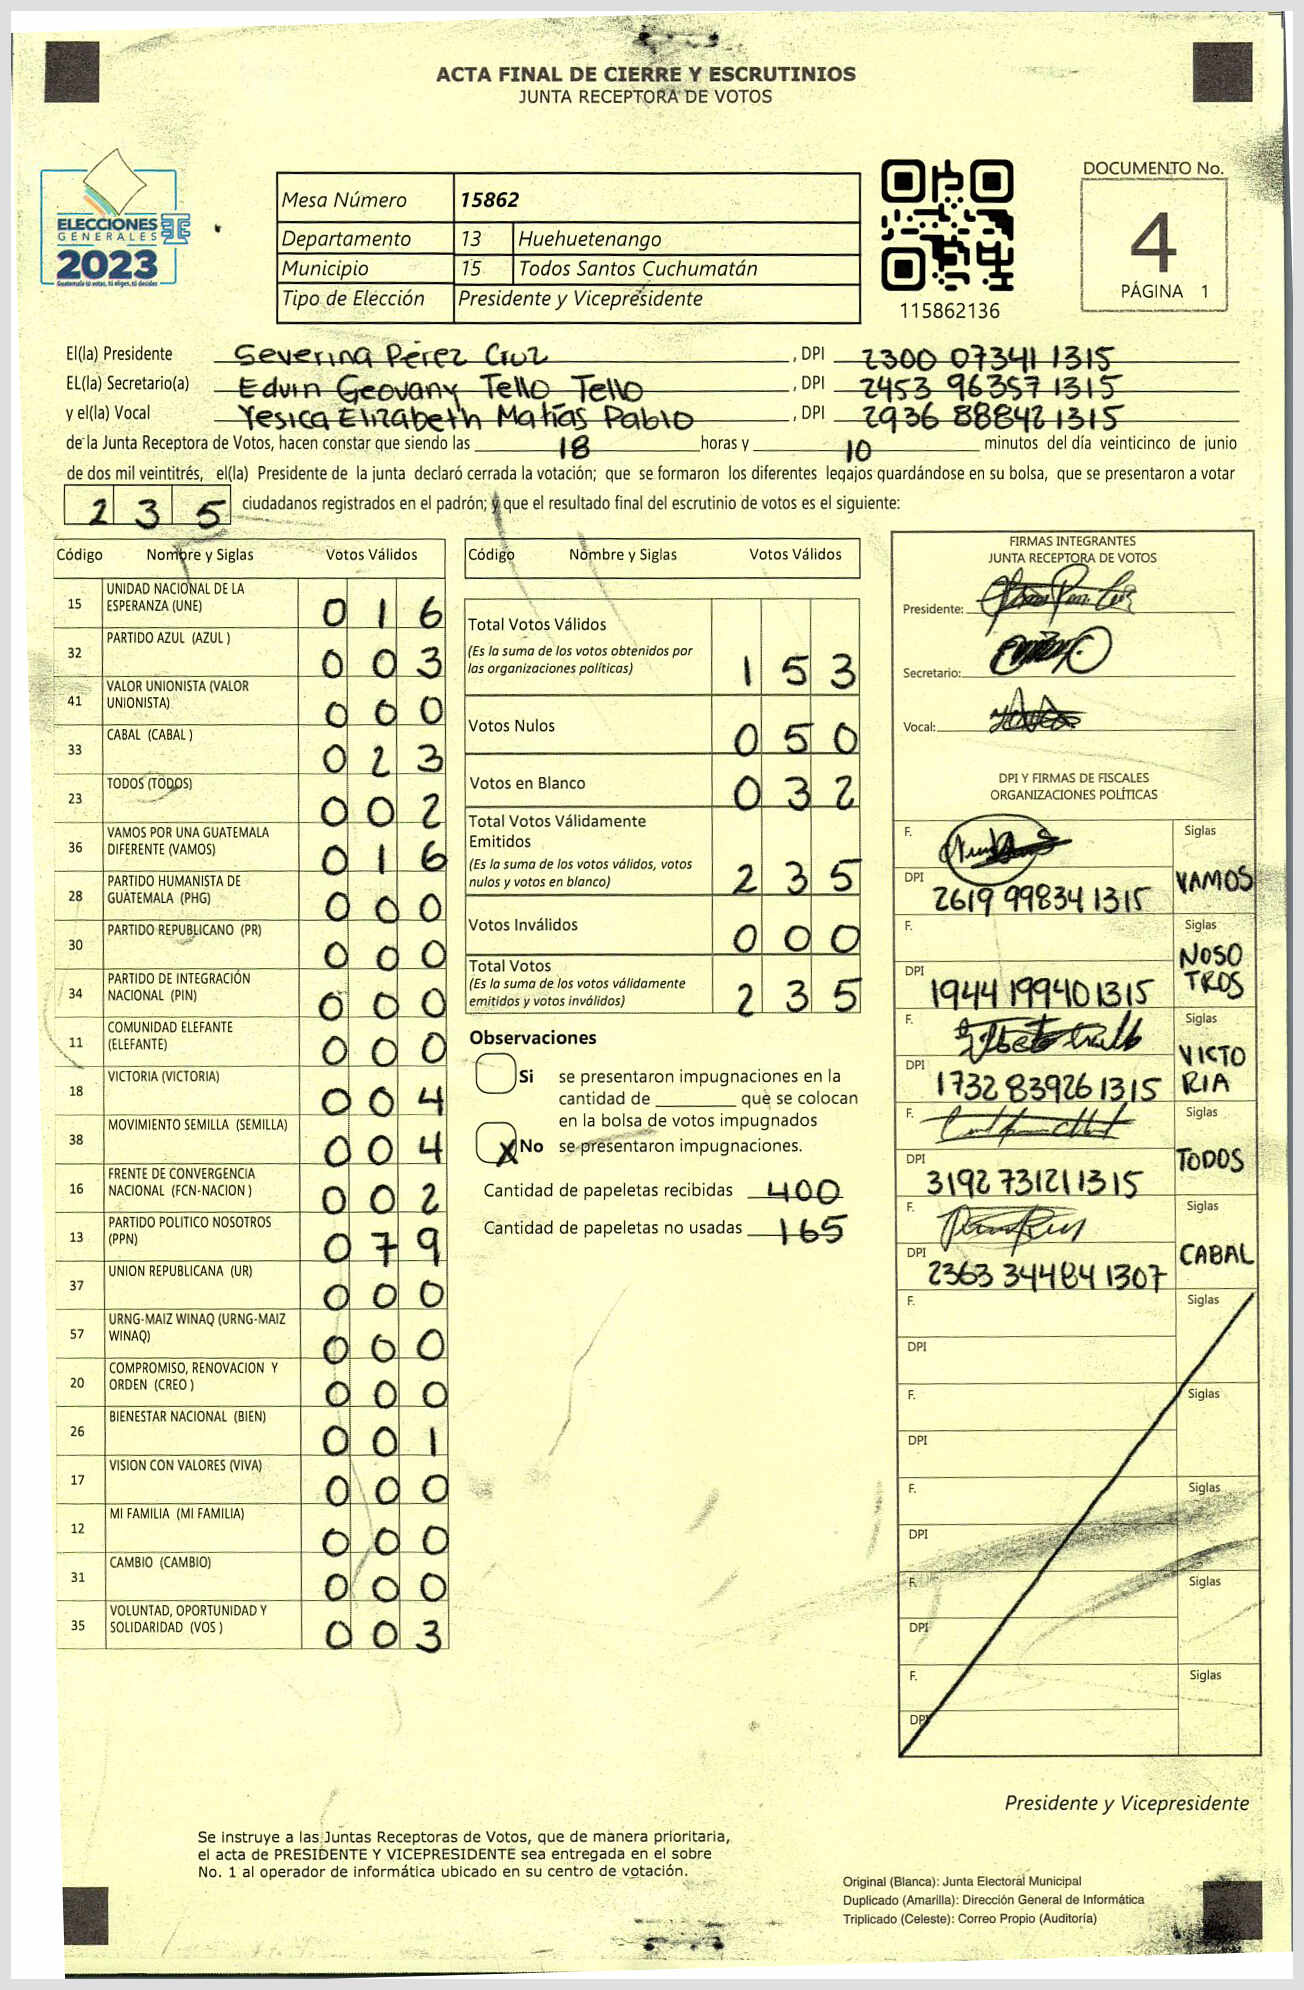 ACTA FINAL DE CIERRE Y ESCRUTINIOS
JUNTA RECEPTORA DE VOTOS
ELECCIONES
GENERALES
2023
Guatemala tú votas, tú eliges, tú decides
Mesa Número 15862
Departamento 13 Huehuetenango
Municipio 15 Todos Santos Cuchumatán
Tipo de Elección Presidente y Vicepresidente
115862136
DOCUMENTO No.
4
PÁGINA 1
El(la) Presidente Severina Pérez Cruz , DPI 2300 07341 1315
EL(la) Secretario(a) Edvin Geovany Tello Tello , DPI 2453 96357 1315
y el(la) Vocal Yesica Elizabeth Matías Pablo , DPI 2936 88842 1315
de la Junta Receptora de Votos, hacen constar que siendo las 18 horas y 10 minutos del día veinticinco de junio
de dos mil veintitrés, el(la) Presidente de la junta declaró cerrada la votación; que se formaron los diferentes legajos guardándose en su bolsa, que se presentaron a votar
2 3 5 ciudadanos registrados en el padrón; y que el resultado final del escrutinio de votos es el siguiente:
Código Nombre y Siglas Votos Válidos
15 UNIDAD NACIONAL DE LA
ESPERANZA (UNE) 0 1 6
32 PARTIDO AZUL (AZUL ) 0 0 3
41 VALOR UNIONISTA (VALOR
UNIONISTA) 0 0 0
33 CABAL (CABAL ) 0 2 3
23 TODOS (TODOS) 0 0 2
36 VAMOS POR UNA GUATEMALA
DIFERENTE (VAMOS) 0 1 6
28 PARTIDO HUMANISTA DE
GUATEMALA (PHG) 0 0 0
30 PARTIDO REPUBLICANO (PR) 0 0 0
34 PARTIDO DE INTEGRACIÓN
NACIONAL (PIN) 0 0 0
11 COMUNIDAD ELEFANTE
(ELEFANTE) 0 0 0
18 VICTORIA (VICTORIA) 0 0 4
38 MOVIMIENTO SEMILLA (SEMILLA) 0 0 4
16 FRENTE DE CONVERGENCIA
NACIONAL (FCN-NACION ) 0 0 2
13 PARTIDO POLITICO NOSOTROS
(PPN) 0 7 9
37 UNION REPUBLICANA (UR) 0 0 0
57 URNG-MAIZ WINAQ (URNG-MAIZ
WINAQ) 0 0 0
20 COMPROMISO, RENOVACION Y
ORDEN (CREO ) 0 0 0
26 BIENESTAR NACIONAL (BIEN) 0 0 1
17 VISION CON VALORES (VIVA) 0 0 0
12 MI FAMILIA (MI FAMILIA) 0 0 0
31 CAMBIO (CAMBIO) 0 0 0
35 VOLUNTAD, OPORTUNIDAD Y
SOLIDARIDAD (VOS ) 0 0 3
Código Nombre y Siglas Votos Válidos
Total Votos Válidos
(Es la suma de los votos obtenidos por
las organizaciones políticas) 1 5 3
Votos Nulos 0 5 0
Votos en Blanco 0 3 2
Total Votos Válidamente
Emitidos
(Es la suma de los votos válidos, votos
nulos y votos en blanco) 2 3 5
Votos Inválidos 0 0 0
Total Votos
(Es la suma de los votos válidamente
emitidos y votos inválidos) 2 3 5
Observaciones
Si se presentaron impugnaciones en la
cantidad de ________ que se colocan
en la bolsa de votos impugnados
X No se presentaron impugnaciones.
Cantidad de papeletas recibidas 400
Cantidad de papeletas no usadas 165
FIRMAS INTEGRANTES
JUNTA RECEPTORA DE VOTOS
Presidente:
Secretario:
Vocal:
DPI Y FIRMAS DE FISCALES
ORGANIZACIONES POLÍTICAS
F. Siglas
DPI 2619 99834 1315 VAMOS
F. Siglas
DPI 1944 19940 1315 NOSO
TROS
F. Siglas
DPI 1732 83926 1315 VICTO
RIA
F. Siglas
DPI 3192 73121 1315 TODOS
F. Siglas
DPI 2363 34484 1307 CABAL
F. Siglas
DPI
F. Siglas
DPI
F. Siglas
DPI
F. Siglas
DPI
F. Siglas
DPI
Presidente y Vicepresidente
Se instruye a las Juntas Receptoras de Votos, que de manera prioritaria,
el acta de PRESIDENTE Y VICEPRESIDENTE sea entregada en el sobre
No. 1 al operador de informática ubicado en su centro de votación.
Original (Blanca): Junta Electoral Municipal
Duplicado (Amarilla): Dirección General de Informática
Triplicado (Celeste): Correo Propio (Auditoría)